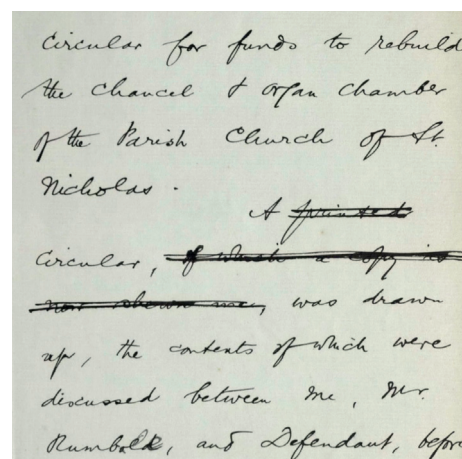 Circular for funds to rebuild
the Chancel & organ chamber
of the Parish Church of St.
Nicholas.
A printed
Circular, of which a copy is
now shewn me, was drawn
up, the contents of which were
discussed between me, Mr.
Rumbold, and Defendant, before